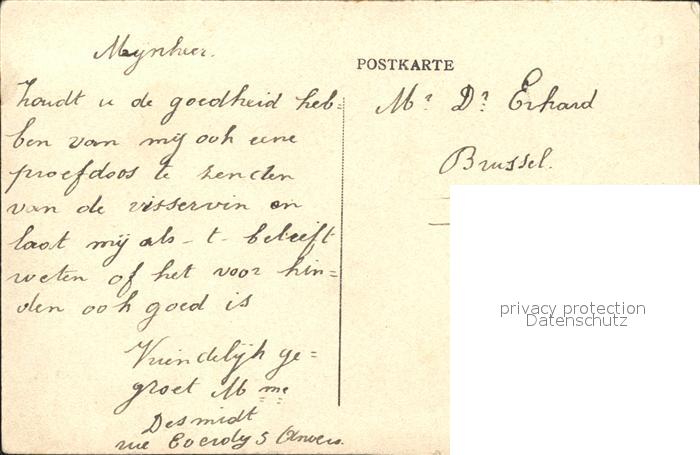 Mijnheer.
houdt u de goedheid heb=
ben van mij ooh eene
proefdoos te zenden
van de visservin en
laat mij als - t - beleeft
weten of het voor hin=
den ooh goed is
Vriendelijk ge=
groet Mme
Desmidt
rue 5 Anvers.
POSTKARTE
Mr Dr Erhard
Brussel.
privacy protection
Datenschutz